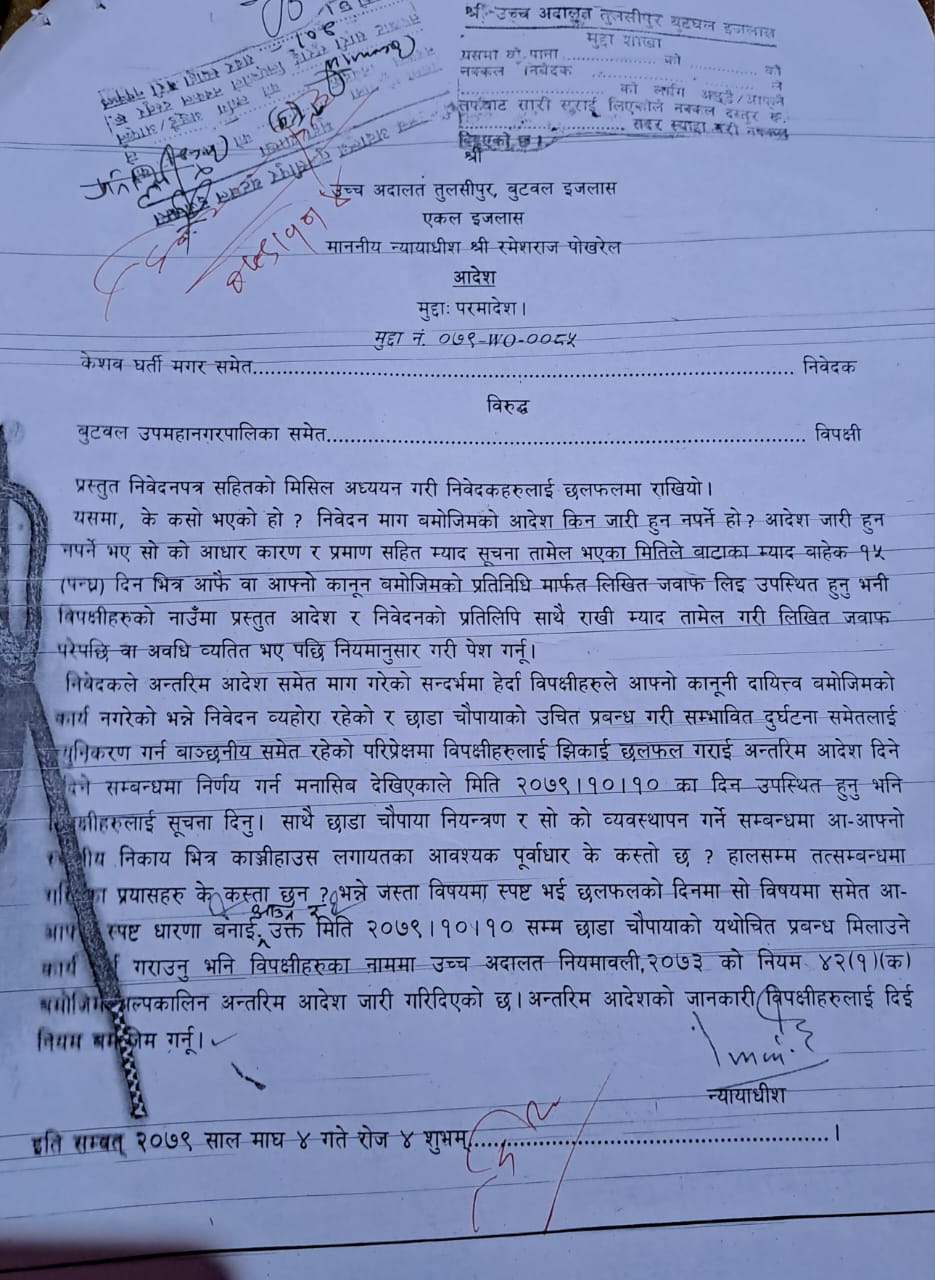 श्री उच्च अदालत तुलसीपुर बुटवल इजलास
मुद्दा शाखा
यसमा को पाना ............ को ............ को
नक्कल निवेदक ............ ले
............ को लागि
तर्फबाट सारी सुराई लिएकोले नक्कल दस्तुर रु.
............ सदर स्याहा गरी नक्कल
दिइएको छ।
श्री
उच्च अदालत तुलसीपुर, बुटवल इजलास
एकल इजलास
माननीय न्यायाधीश श्री रमेशराज पोखरेल
आदेश
मुद्दाः परमादेश।
मुद्दा नं. ०७९-WO-००८५
केशव घर्ती मगर समेत.......................................................................... निवेदक
विरुद्ध
बुटवल उपमहानगरपालिका समेत.................................................................. विपक्षी
प्रस्तुत निवेदनपत्र सहितको मिसिल अध्ययन गरी निवेदकहरुलाई छलफलमा राखियो।
यसमा, के कसो भएको हो ? निवेदन माग बमोजिमको आदेश किन जारी हुन नपर्ने हो? आदेश जारी हुन
नपर्ने भए सो को आधार कारण र प्रमाण सहित म्याद सूचना तामेल भएका मितिले बाटाका म्याद बाहेक १५
(पन्ध्र) दिन भित्र आफै वा आफ्नो कानून बमोजिमको प्रतिनिधि मार्फत लिखित जवाफ लिइ उपस्थित हुनु भनी
विपक्षीहरुको नाउँमा प्रस्तुत आदेश र निवेदनको प्रतिलिपि साथै राखी म्याद तामेल गरी लिखित जवाफ
परेपछि वा अवधि व्यतित भए पछि नियमानुसार गरी पेश गर्नू।
निवेदकले अन्तरिम आदेश समेत माग गरेको सन्दर्भमा हेर्दा विपक्षीहरुले आफ्नो कानूनी दायित्त्व बमोजिमको
कार्य नगरेको भन्ने निवेदन व्यहोरा रहेको र छाडा चौपायाको उचित प्रबन्ध गरी सम्भावित दुर्घटना समेतलाई
न्युनिकरण गर्न बाञ्छनीय समेत रहेको परिप्रेक्षमा विपक्षीहरुलाई झिकाई छलफल गराई अन्तरिम आदेश दिने
सम्बन्धमा निर्णय गर्न मनासिब देखिएकाले मिति २०७९।१०।१० का दिन उपस्थित हुनु भनि
विपक्षीहरुलाई सूचना दिनु। साथै छाडा चौपाया नियन्त्रण र सो को व्यवस्थापन गर्ने सम्बन्धमा आ-आफ्नो
निकाय भित्र काञ्जीहाउस लगायतका आवश्यक पूर्वाधार के कस्तो छ ? हालसम्म तत्सम्बन्धमा
प्रयासहरु के कस्ता छन् ? भन्ने जस्ता विषयमा स्पष्ट भई छलफलको दिनमा सो विषयमा समेत आ-
स्पष्ट धारणा बनाई आउनु र उक्त मिति २०७९।१०।१० सम्म छाडा चौपायाको यथोचित प्रबन्ध मिलाउने
कार्य गराउनु भनि विपक्षीहरुका नाममा उच्च अदालत नियमावली,२०७३ को नियम ४२(१)(क)
बमोजिम अल्पकालिन अन्तरिम आदेश जारी गरिदिएको छ। अन्तरिम आदेशको जानकारी विपक्षीहरुलाई दिई
नियम बमोजिम गर्नू।
न्यायाधीश
इति सम्वत् २०७९ साल माघ ४ गते रोज ४ शुभम्.............................................।